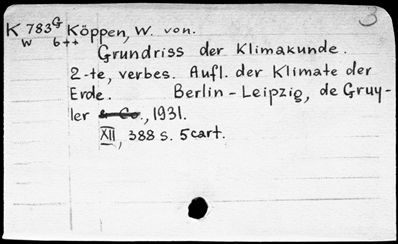 3
K 783G Köppen, W. von.
w b++
Grundriss der Klimakunde.
2-te, verbes. Aufl. der Klimate der
Erde. Berlin - Leipzig, de Gruy-
ler & Co., 1931.
XII, 388 s. 5 cart.